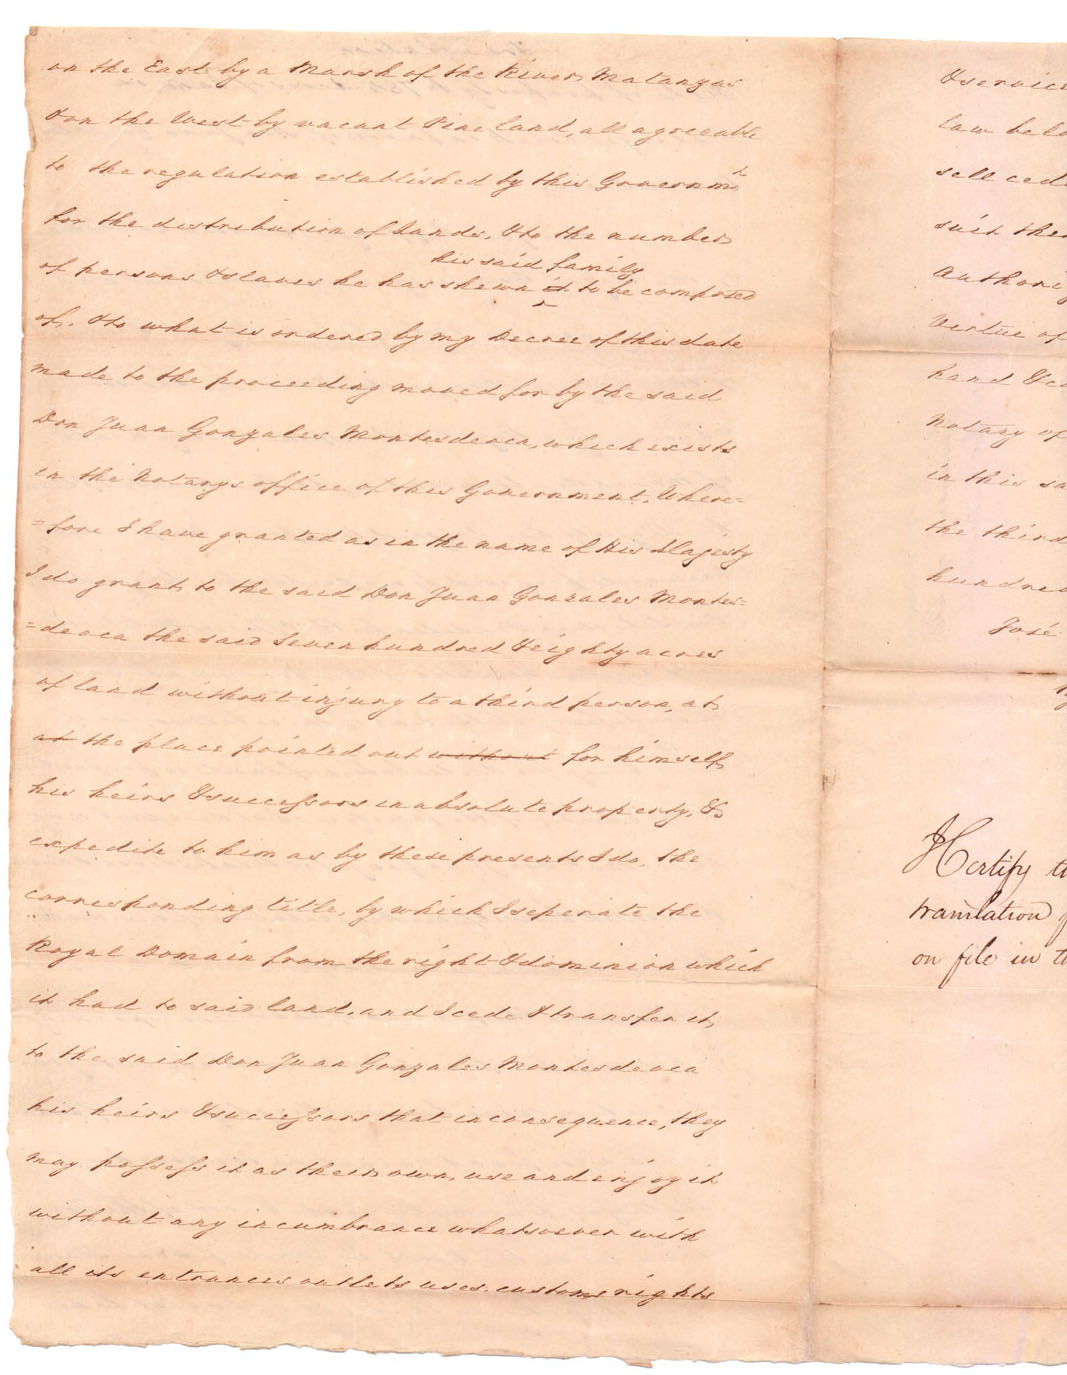 on the East by a Marsh of the River Matanzas
& on the West by vacant Pine land, all agreeable
to the regulation established by this Governmt.
for the distribution of lands, & to the number
his said family
of persons & slaves he has shewn it to be composed
of, & to what is ordered by my Decree of this date
made to the proceeding moved for by the said
Don Juan Gonzales Montesdeoca, which exists
in the Notarys office of this Government, Where=
=fore I have granted as in the name of His Majesty
I do grant, to the said Don Juan Gonzales Montes=
=deoca the said Seven hundred & eighty acres
of land without injury to a third person, at
at the place pointed out without for himself,
his heirs & successors in absolute property, &
expedite to him as by these presents I do, the
corresponding title, by which I seperate the
Royal Domain from the right & dominion which
it had to said land, and I cede & transfer it,
to the said Don Juan Gonzales Montesdeoca
his heirs & successors that in consequence, they
may possess it as their own, use and enjoy it
without any incumbrance whatsoever with
all its entrances outlets uses, customs rights
& service
law
sell
suit
Authority
Virtue of
hand &
Notary of
in this
the third
hundred
José
I Certify
translation
on file in